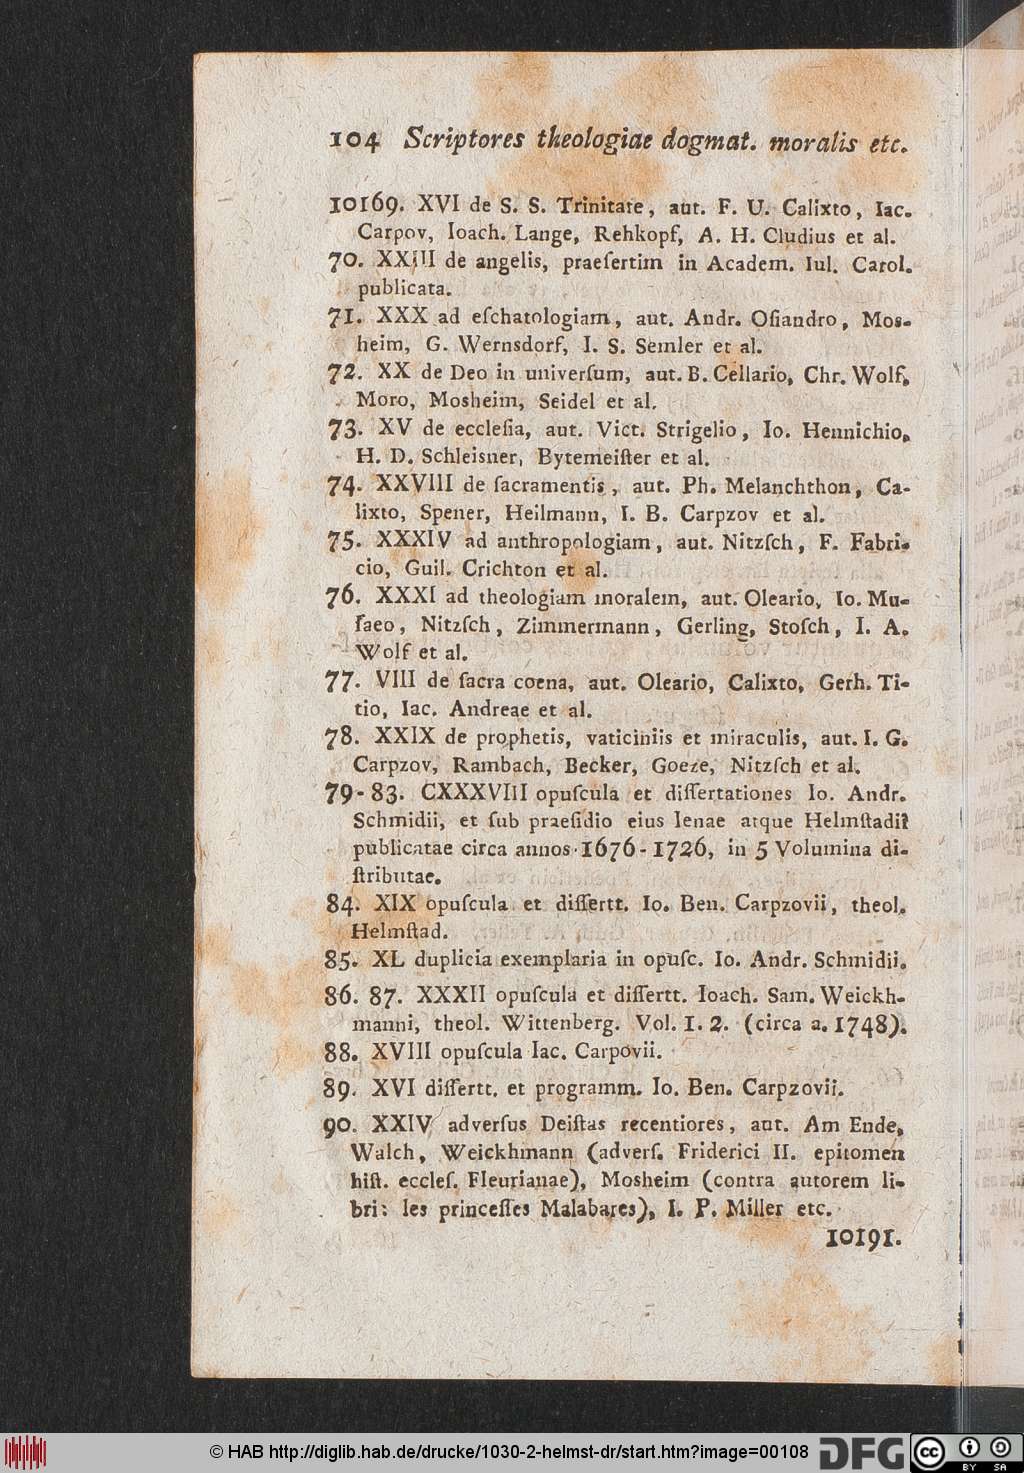 104 Scriptores theologiae dogmat. moralis etc.
10169. XVI de S. S. Trinitate, aut. F. U. Calixto, Iac.
Carpov, Ioach. Lange, Rehkopf, A. H. Cludius et al.
70. XXIII de angelis, praeſertim in Academ. Iul. Carol.
publicata.
71. XXX ad eſchatologiam, aut. Andr. Oſiandro, Mos-
heim, G. Wernsdorf, I. S. Semler et al.
72. XX de Deo in univerſum, aut. B. Cellario, Chr. Wolf,
Moro, Mosheim, Seidel et al.
73. XV de eccleſia, aut. Vict. Strigelio, Io. Hennichio,
H. D. Schleisner, Bytemeiſter et al.
74. XXVIII de ſacramentis, aut. Ph. Melanchthon, Ca-
lixto, Spener, Heilmann, I. B. Carpzov et al.
75. XXXIV ad anthropologiam, aut. Nitzſch, F. Fabri-
cio, Guil. Crichton et al.
76. XXXI ad theologiam moralem, aut. Oleario, Io. Mu-
ſaeo, Nitzſch, Zimmermann, Gerling, Stoſch, I. A.
Wolf et al.
77. VIII de ſacra coena, aut. Oleario, Calixto, Gerh. Ti-
tio, Iac. Andreae et al.
78. XXIX de prophetis, vaticiniis et miraculis, aut. I. G.
Carpzov, Rambach, Becker, Goeze, Nitzſch et al.
79-83. CXXXVIII opuſcula et diſſertationes Io. Andr.
Schmidii, et ſub praeſidio eius Ienae atque Helmſtadii
publicatae circa annos 1676-1726, in 5 Volumina di-
ſtributae.
84. XIX opuſcula et diſſertt. Io. Ben. Carpzovii, theol.
Helmſtad.
85. XL duplicia exemplaria in opuſc. Io. Andr. Schmidii.
86. 87. XXXII opuſcula et diſſertt. Ioach. Sam. Weickh-
manni, theol. Wittenberg. Vol. 1. 2. (circa a. 1748).
88. XVIII opuſcula Iac. Carpovii.
89. XVI diſſertt. et programm. Io. Ben. Carpzovii.
90. XXIV adverſus Deiſtas recentiores, aut. Am Ende,
Walch, Weickhmann (adverſ. Friderici II. epitomen
hiſt. eccleſ. Fleurianae), Mosheim (contra autorem li-
bri: les princeſſes Malabares), I. P. Miller etc.
10191.
© HAB http://diglib.hab.de/drucke/1030-2-helmst-dr/start.htm?image=00108
DFG
cc BY SA